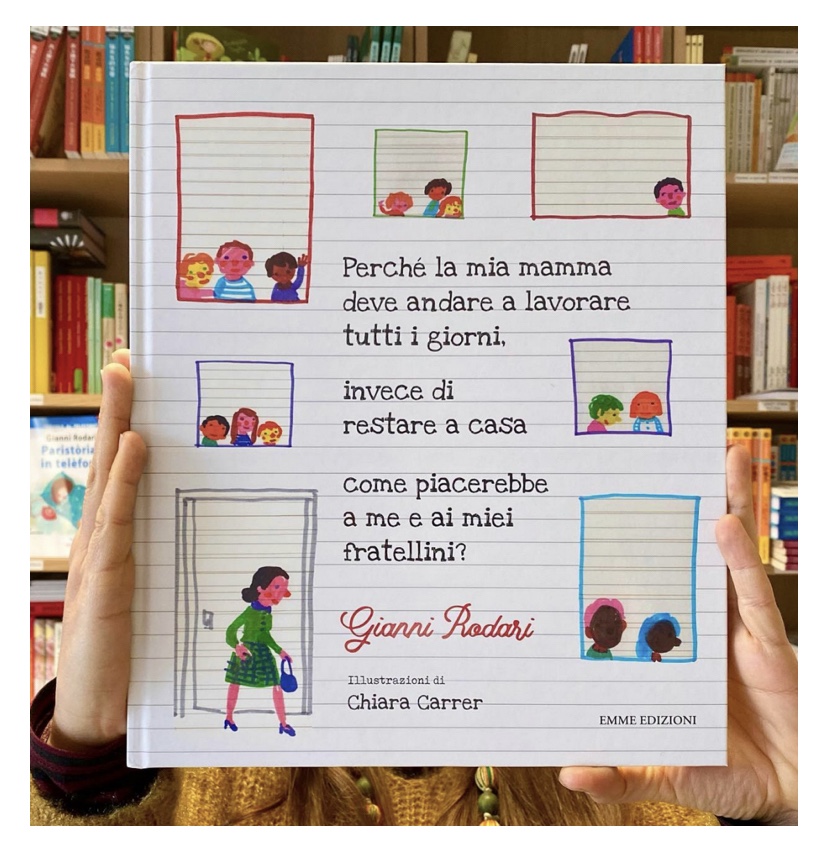 Perché la mia mamma
deve andare a lavorare
tutti i giorni,
invece di
restare a casa
come piacerebbe
a me e ai miei
fratellini?
Gianni Rodari
Illustrazioni di
Chiara Carrer
EMME EDIZIONI
Gianni Rodar
Paristòria
in telèfo